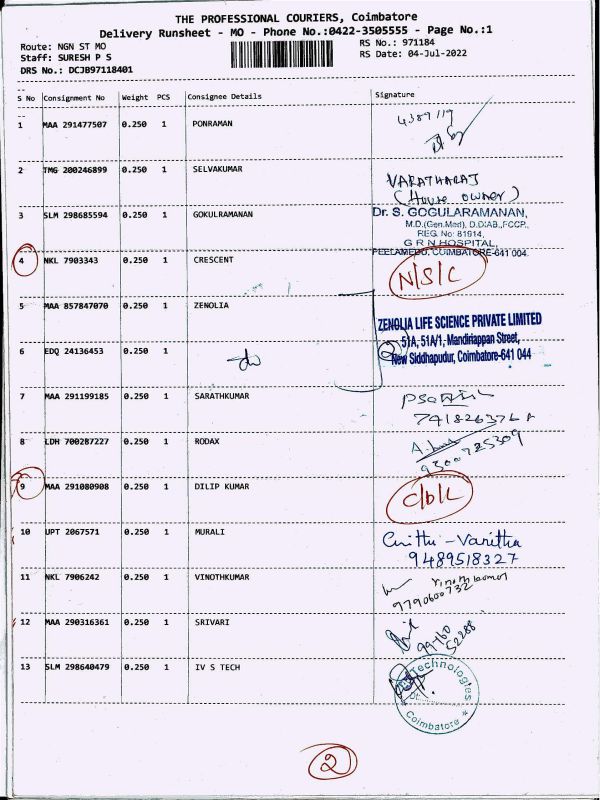 THE PROFESSIONAL COURIERS, Coimbatore
Delivery Runsheet - MO - Phone No.:0422-3505555 - Page No.:1
Route: NGN ST MO
Staff: SURESH P S
DRS No.: DCJB97118401
RS No.: 971184
RS Date: 04-Jul-2022
S No Consignment No Weight PCS Consignee Details Signature
1 MAA 291477507 0.250 1 PONRAMAN
2 TMG 200246899 0.250 1 SELVAKUMAR
VARATHARAJ
(House owner)
3 SLM 298685594 0.250 1 GOKULRAMANAN
Dr. S. GOGULARAMANAN,
M.D.(Gen.Med), D.DIAB.,FCCP.,
REG. No: 81914,
G R N HOSPITAL,
PEELAMEDU, COIMBATORE-641 004.
4 NKL 7903343 0.250 1 CRESCENT N/S/C
5 MAA 857847070 0.250 1 ZENOLIA
ZENOLIA LIFE SCIENCE PRIVATE LIMITED
51A, 51A/1, Mandiriappan Street,
New Siddhapudur, Coimbatore-641 044
2
6 EDQ 24136453 0.250 1 do
7 MAA 291199185 0.250 1 SARATHKUMAR
8 LDH 700287227 0.250 1 RODAX
9300725309
9 MAA 291080908 0.250 1 DILIP KUMAR c/b/L
10 UPT 2067571 0.250 1 MURALI
9489518327
11 NKL 7906242 0.250 1 VINOTHKUMAR
9790600732
12 MAA 290316361 0.250 1 SRIVARI
99760
52288
13 SLM 298640479 0.250 1 IV S TECH
Technologies
Coimbatore
2